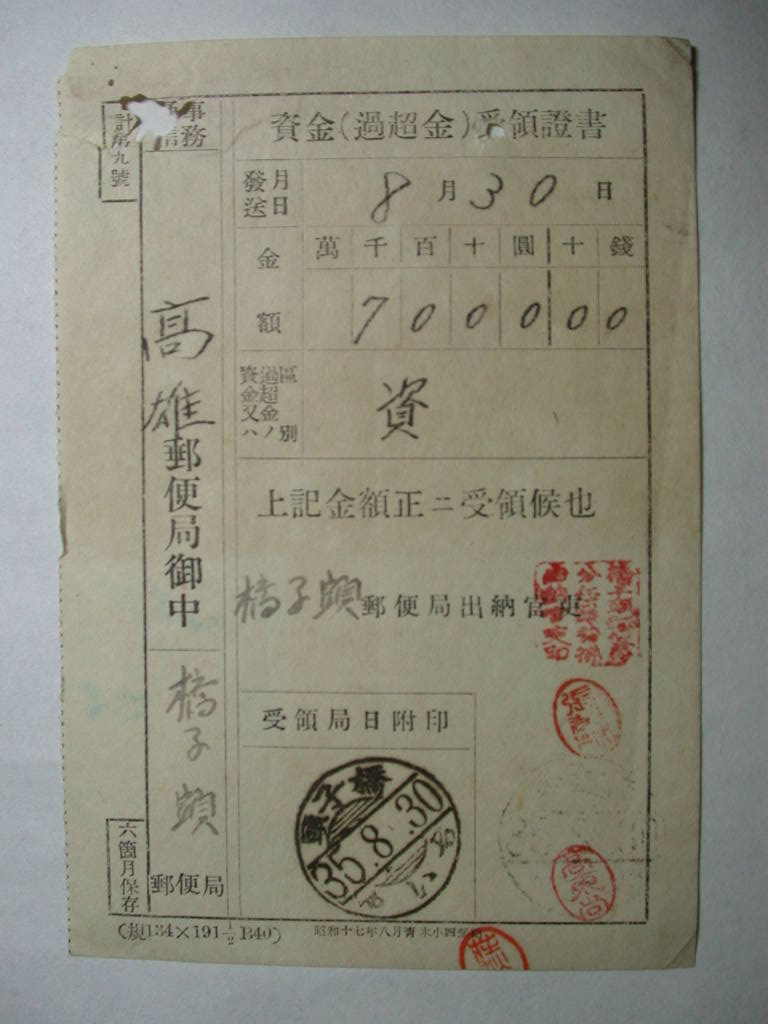 計第九號
事務
資金(過超金)受領證書
發送月日 8月30日
金額
萬千百十圓十錢
7000000
資金又ハ過超金ノ區別
資
上記金額正ニ受領候也
橋子頭郵便局出納官吏
高雄郵便局御中
橋子頭
郵便局
受領局日附印
橋子頭
35.8.30
六箇月保存
(規134×191½ B40)
昭和十七年八月